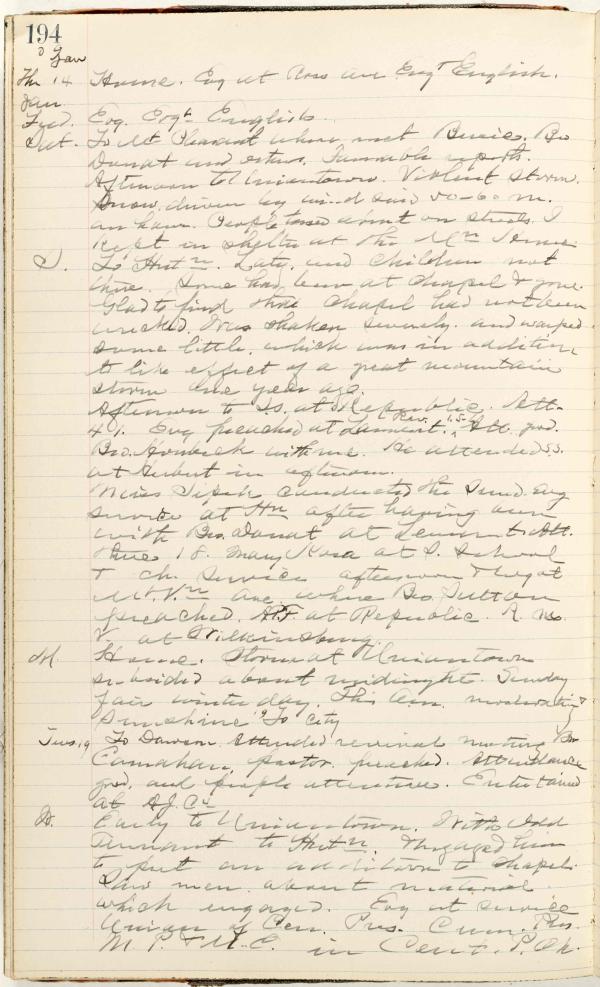 194
Jan
Thu 14 Home. Evg at Ross Ave Evgt English.
Jan
Frid. Evg. Evgt English.
Sat. To Mt Pleasant where met Bros. Bro
Donat and others. Favorable reports.
Afternoon to Uniontown. Violent storm.
Snow driven by wind said 50-60 m.
an hour. People tossed about on streets. I
kept in shelter at the Mtn House
S. To Hutn. Laty. and children not
there. Some had been at chapel & gone.
Glad to find that chapel had not been
wrecked. Was shaken severely and warped
some little, which was in addition
to like effect of a great mountain
storm one year ago.
Afternoon to S.S. at Republic. Att.
41. Evg preached at Lamont. Att. good.
Bro. with me. He attended S.S.
at Hubert in afternoon.
Miss conducted the Sund. Evg
service at Hn after having been
with Bro. Donat at Lemont. Att.
there 18. Mary Rosa at S. School
& ch. service afternoon & night
Mt. Vn Ave where Bro. Sutton
preached. at Republic. R. M.
V. at Wilkinsburg.
M. Home. Storm at Uniontown
subsided about midnight. Sunday
fair winter day. This a.m. moderating &
sunshine. To city
Tues. 19 To Dawson. Attended revival meeting Bro
Carnahan, pastor, preached. Attendance
good, and people attentive. Entertained
at A.J.C's
W. Early to Uniontown. With
to Hutn. Engaged him
to put an addition to chapel.
Saw men about material
which engaged. Evg at service
Union of Cen. Pres. Cum. Pres.
M. P. & M. E. in Cent. P. Ch.